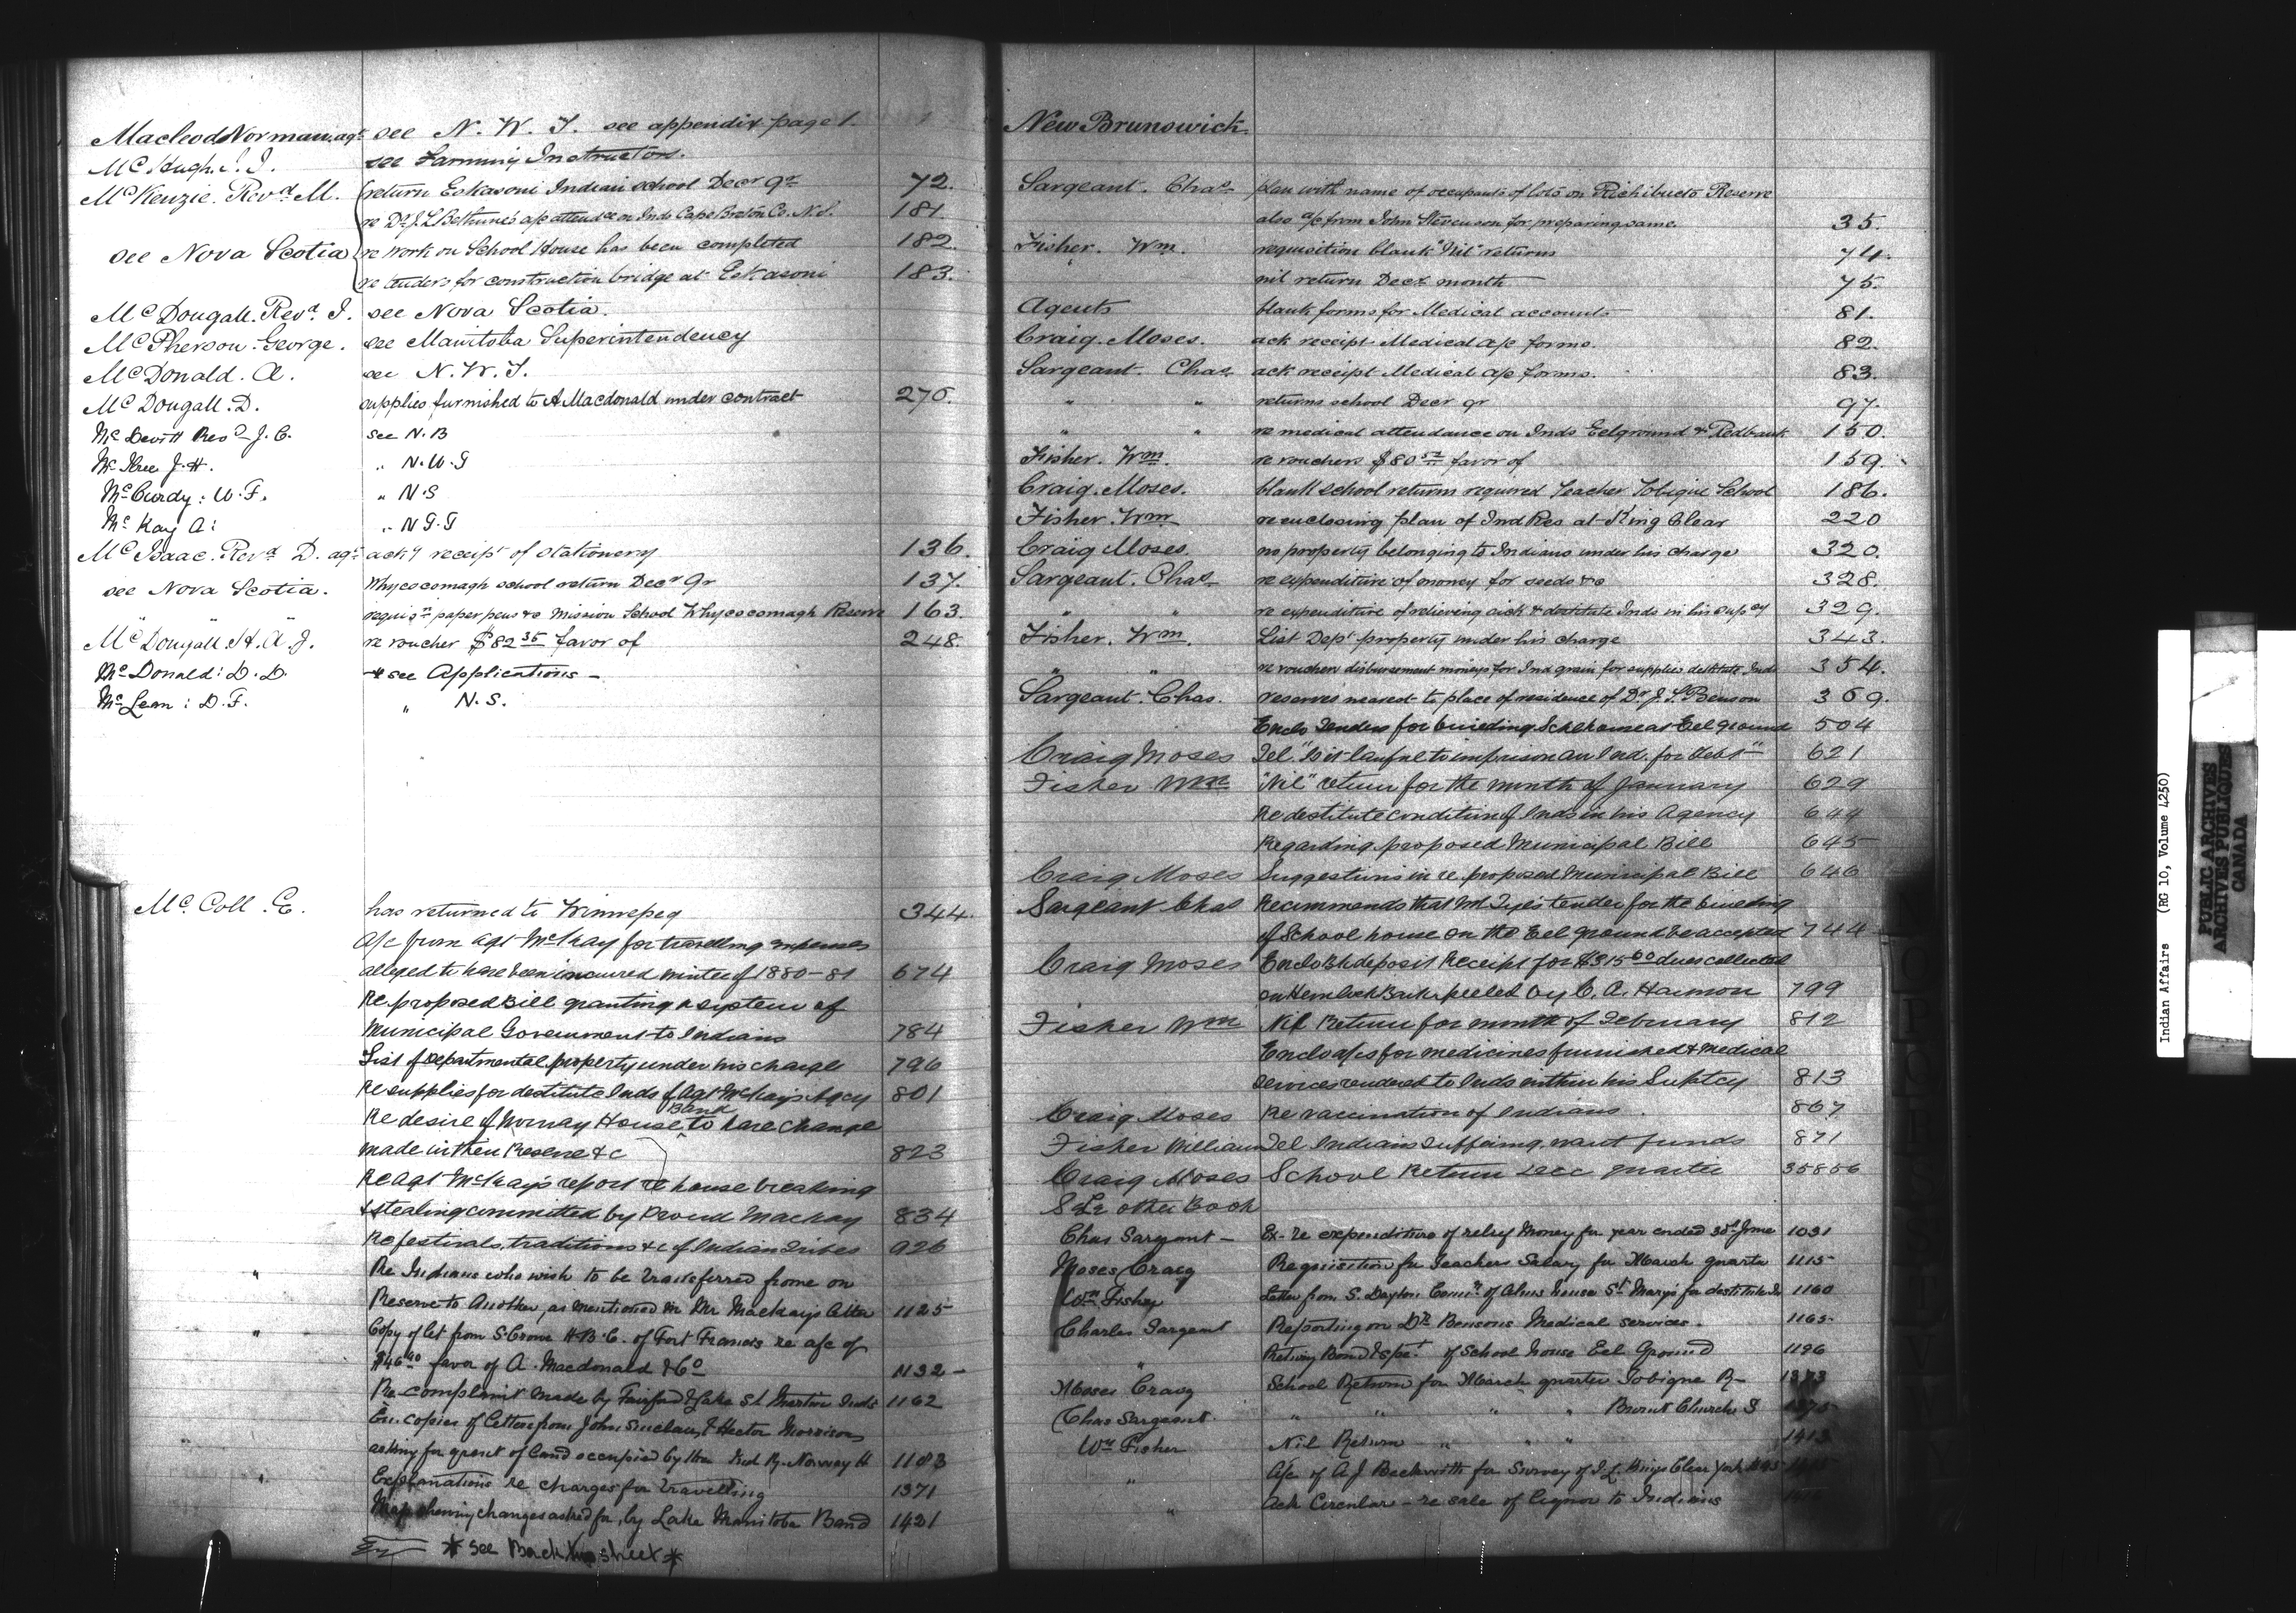 Macleod Norman agt see N. W. T. see appendix page 1.
McHugh. J. J. see Farming Instructors.
McKenzie. Revd M. return Eskasoni Indian school Decr qr 72.
re Dr J. L. Bethune's a/c attendce on Inds Cape Breton Co. N.S. 181.
see Nova Scotia re work on School House has been completed 182.
re tenders for construction bridge at Eskasoni 183.
McDougall. Revd. J. see Nova Scotia.
McPherson. George. see Manitoba Superintendency
McDonald. A. see N. W. T.
McDougall. D. supplies furnished to A Macdonald under contract 276.
McDevitt Revd J. C. see N. B
McIlree J. H. " N. W. T
McCurdy: W. F. " N. S
McKay A: " N. T. T
McIsaac. Revd D. agt ackg receipt of stationery 136.
see Nova Scotia. Whycocomagh school return Decr qr 137.
requisn paper pens &c Mission School Whycocomagh Reserve 163.
McDougall. H. A. J. re voucher $82 35 favor of 248.
McDonald: D. D. * see Applications -
McLean: D. F. " N. S.
Mc. Coll. E. has returned to Winnepeg 344.
a/c from Agt McKay for travelling expenses
alleged to have been incurred winter of 1880-81 674
Re proposed Bill granting a system of
Municipal Government to Indians 784
List of Departmental property under his charge 796
Re supplies for destitute Inds of Agt McKay's Agcy 801
Re desire of Norway House Band to have change
made in their Reserve &c 823
Re Agt McKay's report re house breaking
& stealing committed by Proud Mackay 834
Re festivals, traditions &c of Indian Tribes 926
" Re Indians who wish to be transferred from on
Reserve to Another, as mentioned in Mr Mackays Letter 1125
" Copy of let from S. Crowe H. B. C. of Fort Francis re a/c of
$46 40 favor of A. Macdonald & Co 1132 -
Re-complaint made by Fairford & Lake St Martin Inds 1162
En. copies of Letters from John Sinclair & Hector Morrison
asking for grant of land occupied by them Ind R. Norway H 1183
" Explanations re charges for travelling 1371
Map shewing changes asked for, by Lake Manitoba Band 1421
* see Back this sheet *
New Brunswick
Sargeant. Chas plan with name of occupants of lots on Richibucto Reserve
also a/c from John Stevenson for preparing same. 35.
Fisher. Wm. requisition blank "Nil" returns 74.
nil return Decr month 75.
Agents blank forms for Medical accounts 81.
Craig. Moses. ack receipt Medical a/c forms. 82.
Sargeant. Chas ack receipt Medical a/c forms. 83.
" " returns school Decr qr 97.
" " re medical attendance on Inds Eelground & Redbank 150.
Fisher. Wm. re vouchers $80 52 favor of 159.
Craig. Moses. blank school returns required Teacher Tobique School 186.
Fisher. Wm re enclosing plan of Ind Res at King Clear 220
Craig Moses. no property belonging to Indians under his charge 320.
Sargeant. Chas re expenditure of money for seeds &c 328.
" " re expenditure of relieving sick & destitute Inds in his supcy 329.
Fisher. Wm. List Dept property under his charge 343.
" " re vouchers disbursement moneys for Ind grain for supplies destitute Inds 354.
Sargeant. Chas. reserves nearest to place of residence of Dr. J. S. Benson 369.
Enclo Tenders for building Schl house at Eel ground 504
Craig Moses Tel. "Is it lawful to imprison an Ind. for debt" 621
Fisher Wm "Nil" return for the month of January 629
Re destitute condition of Inds in his Agency 644
Regarding proposed Municipal Bill 645
Craig Moses Suggestions in re proposed Municipal Bill 646
Sargeant Chas Recommends that Wm Tye's tender for the building
of School house on the Eel ground be accepted 744
Craig Moses Enclo Bk deposit Receipt for $315 60 dues collected
on Hemlock Bark peeled by C. A. Harmon 799
Fisher Wm Nil Return for month of February 812
Enclo a/cs for medicines furnished & medical
services rendered to Inds within his Suptcy 813
Craig Moses Re vaccination of Indians. 867
Fisher William Tel Indians suffering, want funds 871
Craig Moses School Return Dec quarter 35856
See other Book
Chas Sargent - Ex- re expenditure of relief Money for year ended 30th June 1031
Moses Craig Requisition for Teachers Salary for March quarter 1115
Wm Fisher Letter from S. Dayton Comr of Alms house St Mary's for destitute In 1160
Charles Sargent Reporting on Dr Bensons Medical services. 1165
" Retung Bond & spec. of School house Eel Ground 1196
Moses Craig School Return for March quarter Tobique R- 1373
Chas Sargeant. " " " " Burnt Church S 1375
Wm Fisher Nil Return " " " 1413
" A/c of A J Beckwith for Survey of I. R. Kings Clear York
" Ack Circular - re sale of liquor to Indians
Indian Affairs (RG 10, Volume 4250)
PUBLIC ARCHIVES
ARCHIVES PUBLIQUES
CANADA